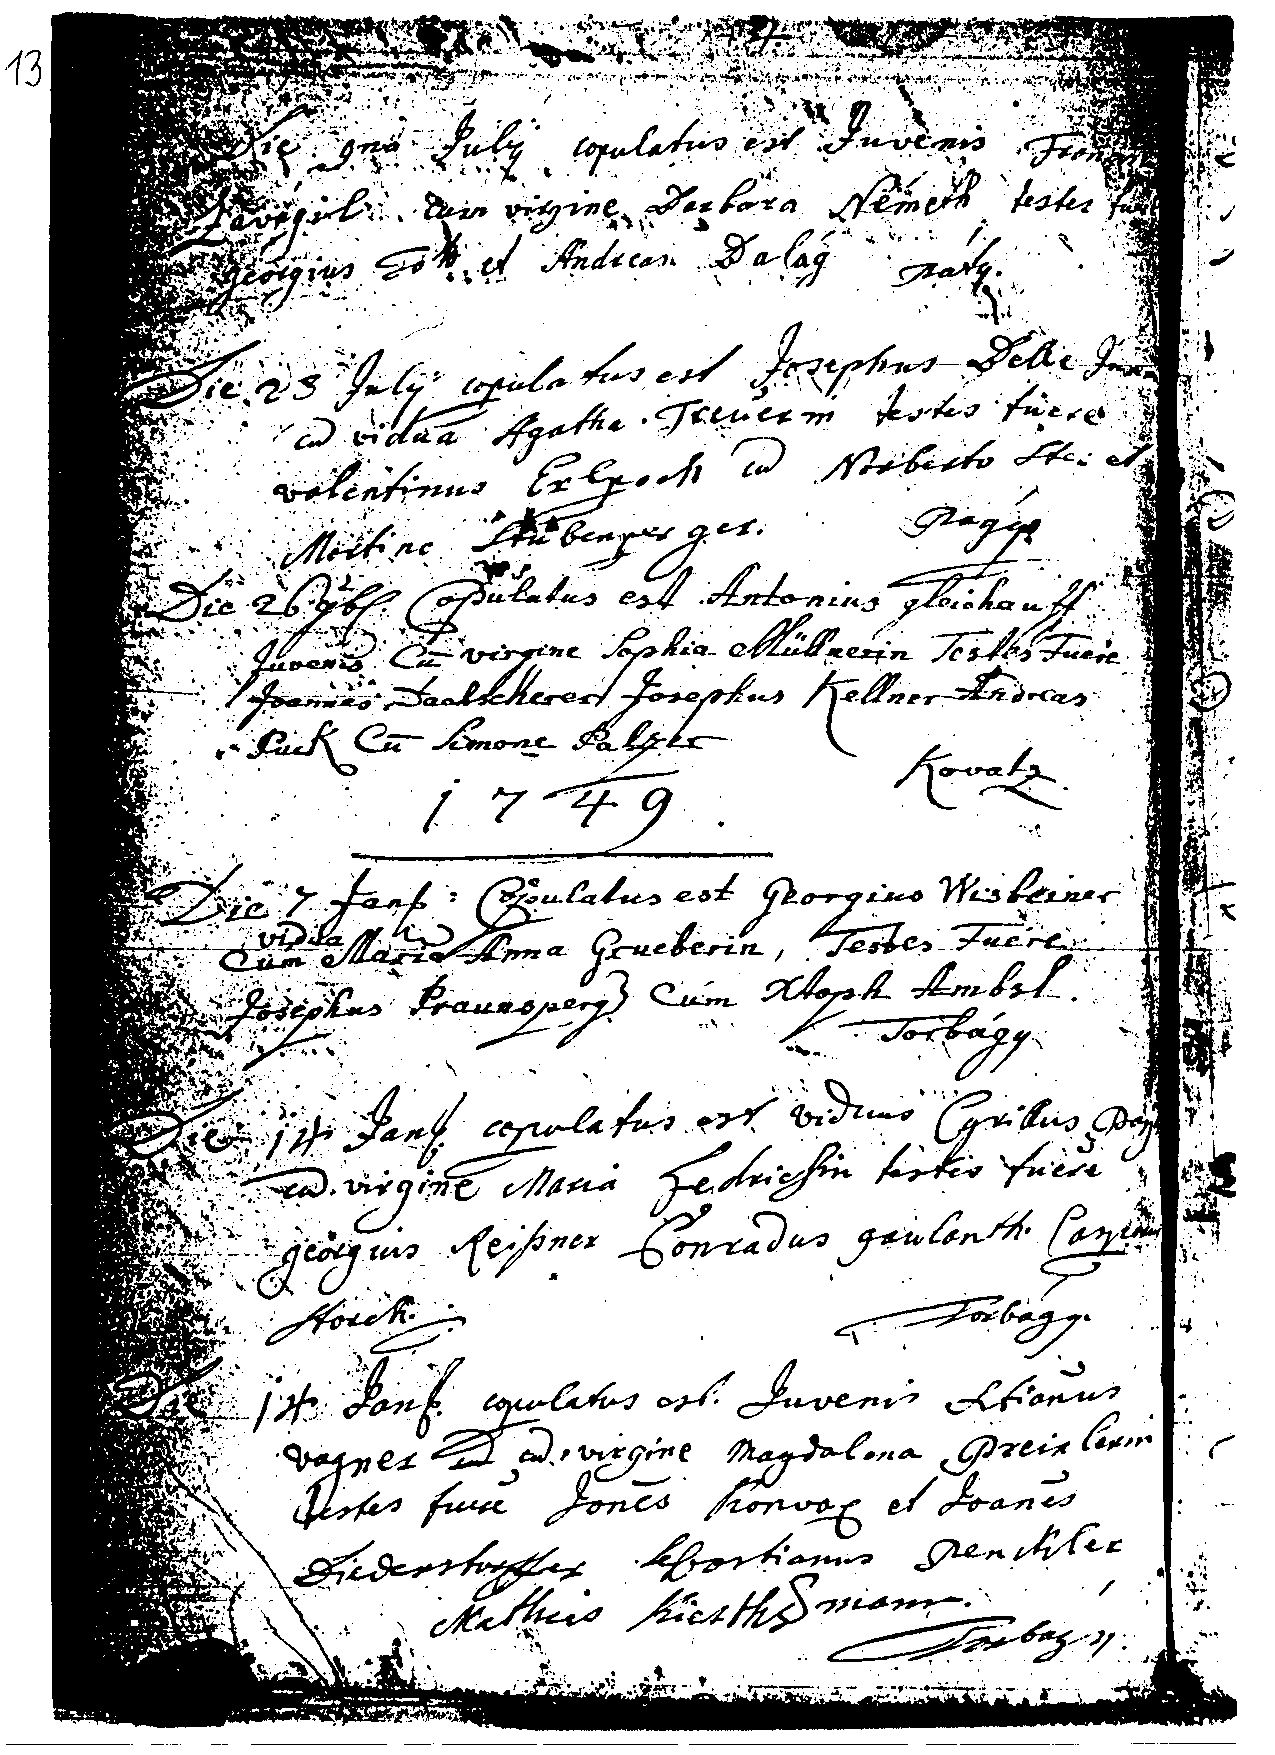 13
Die 9na Julÿ copulatus est Juvenis
cum virgine Barbara Németh testes
georgius Tott et Andreas Dalág paty.
Die 23 Julÿ copulatus est Josephus Delle
cū vidua Agatha Treuerin testes fuere
valentinus cū Norberto et
Martino Stubenperger. Pagÿ
Die 26 9b. Copulatus est Antonius gleichauff
Juvenis Cū virgine Sophia Müllnerin Testes Fuere
Joannes Josephus Kellner Andreas
Puck Cū Simone Palzer
Kovatz
1749
Die 7 Jan: Copulatus est Georgius Wisbeiner
vidua
Cum Maria Anna Grueberin, Testes Fuere
Josephus Praunsperg Cum Xtoph Ambsl.
Torbágy
Die 14 Jan. copulatus est viduus Cyrillus
cū virgine Maria testes fuere
georgius Reißner Conradus gaulanth.
Storch. Torbágy.
Die 14 Jan. copulatus est. Juvenis Stianus
vagner cū virgine Magdalena
testes fuere et Joanēs
Sebastianus Penckler
Mathias
Torbagy.